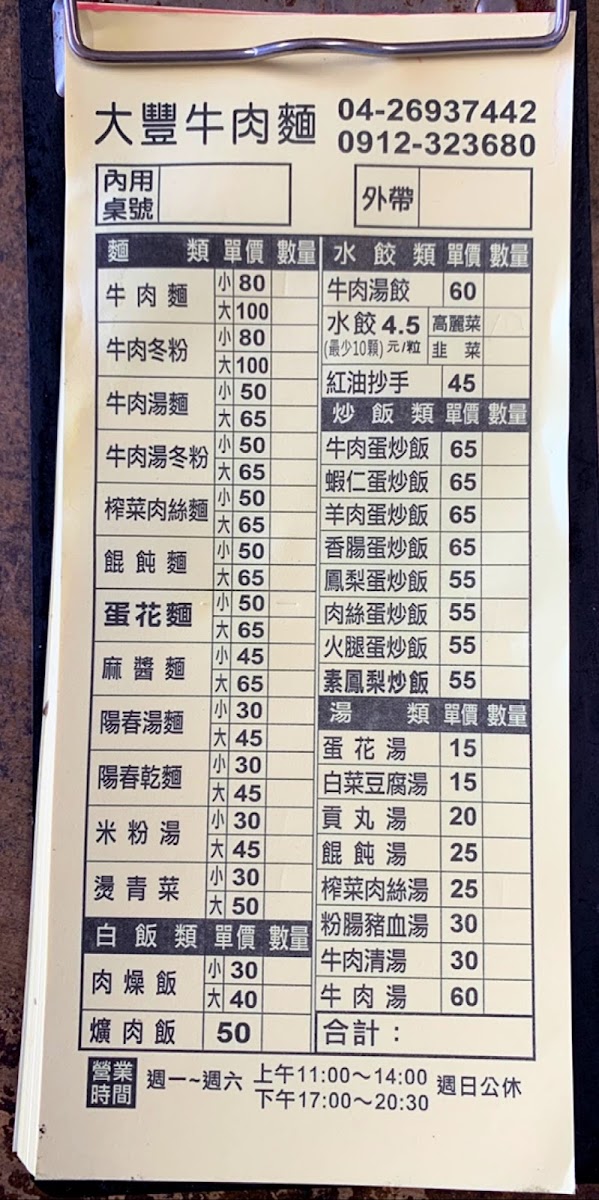 大豐牛肉麵 04-26937442
0912-323680
內用
桌號
外帶
麵 類 單價 數量
牛肉麵 小 80
大 100
牛肉冬粉 小 80
大 100
牛肉湯麵 小 50
大 65
牛肉湯冬粉 小 50
大 65
榨菜肉絲麵 小 50
大 65
餛飩麵 小 50
大 65
蛋花麵 小 50
大 65
麻醬麵 小 45
大 65
陽春湯麵 小 30
大 45
陽春乾麵 小 30
大 45
米粉湯 小 30
大 45
燙青菜 小 30
大 50
白飯類 單價 數量
肉燥飯 小 30
大 40
爌肉飯 50
水餃類 單價 數量
牛肉湯餃 60
水餃 4.5 高麗菜
(最少10顆) 元/粒 韭菜
紅油抄手 45
炒飯類 單價 數量
牛肉蛋炒飯 65
蝦仁蛋炒飯 65
羊肉蛋炒飯 65
香腸蛋炒飯 65
鳳梨蛋炒飯 55
肉絲蛋炒飯 55
火腿蛋炒飯 55
素鳳梨炒飯 55
湯 類 單價 數量
蛋花湯 15
白菜豆腐湯 15
貢丸湯 20
餛飩湯 25
榨菜肉絲湯 25
粉腸豬血湯 30
牛肉清湯 30
牛肉湯 60
合計：
營業
時間
週一~週六 上午11:00～14:00 週日公休
下午17:00～20:30